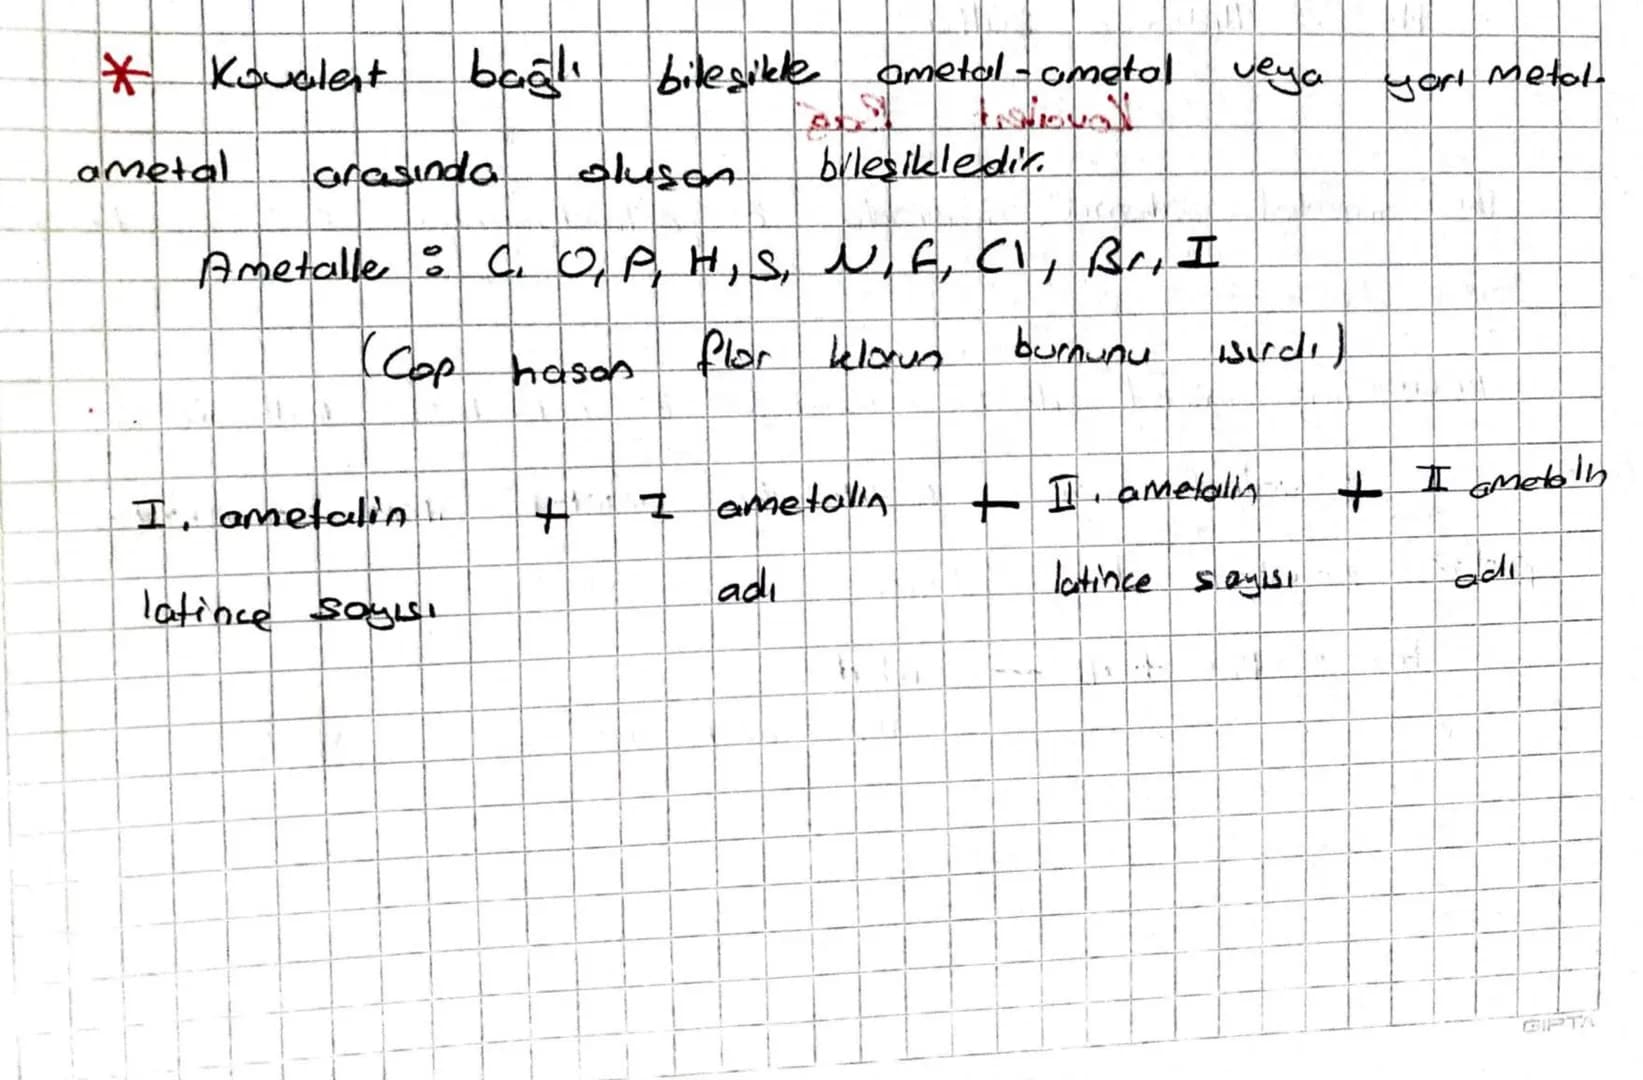 * Kovalent bağlı bileşikle ametal-ametal veya yarı metal-
ametal arasında oluşan bileşikledir.
Ametalle : C, O, P, H, S, N, F, Cl, Br, I
(Cop hasan flor klorun burnunu ısırdı)
I. ametalin + I ametalin + II. ametalin + II ametalin
latince sayısı adı latince sayısı adı
GIPTA